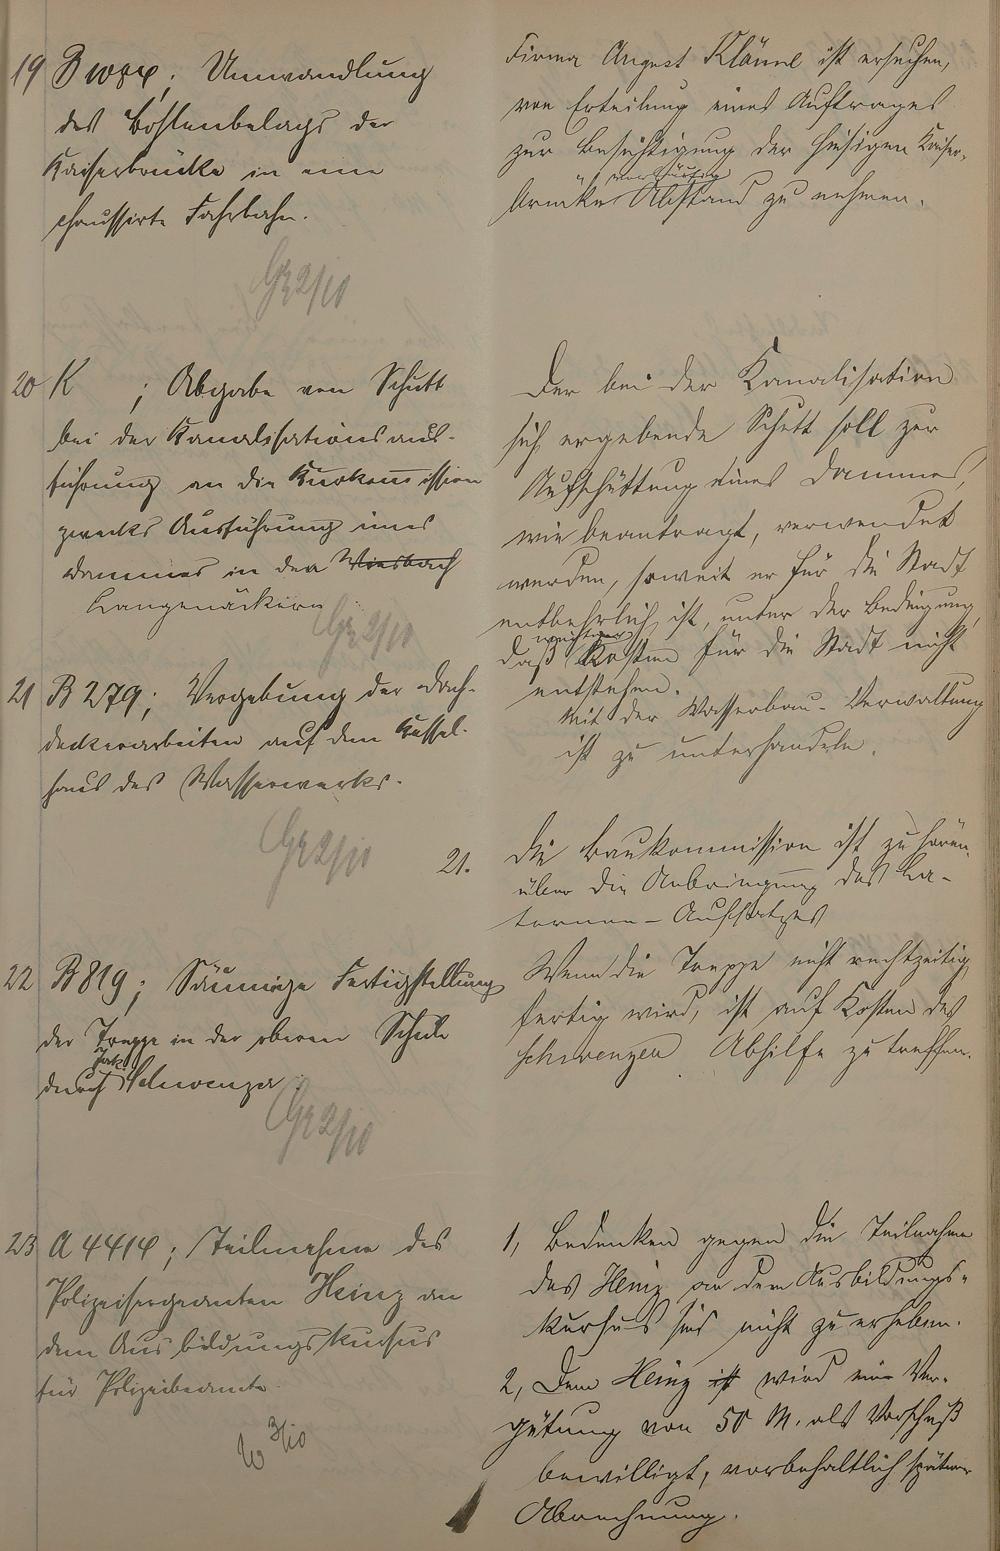 19 B ; Umwandlung
des Bohlenbelags der
Kaiserbrücke in eine
chaussirte Fahrbahn.
Gr 2/10
Firma August Klönne ist ersuchen,
von Erteilung eines Auftrages
zur Besichtigung der hiesigen Kaiser-
vorläufig
brücke Abstand zu nehmen.
20 K ; Abgabe von Schutt
bei der Kanalisationsaus-
führung an die Kurkommission
zwecks Ausführung eines
Dammes in den Wiesbach
Langenäckern
Gr 2/10
Der bei der Kanalisation
sich ergebende Schutt soll zur
Aufschüttung eines Dammes,
wie beantragt, verwendet
werden, soweit er für die Stadt
entbehrlich ist, unter der Bedingung,
daß Kosten für die Stadt nicht
entstehen.
Mit der Wasserbau-Verwaltung
ist zu unterhandeln.
21 B 279; Vergebung der Dach-
deckerarbeiten auf dem Kessel-
haus des Wasserwerks.
Gr 2/10
21. Die Baukommission ist zu hören
über die Anbringung des La-
ternen-Aufsatzes
22 B 819; Säumige Fertigstellung
der Treppe in der oberen Schule
Jak.
durch Schwenzer.
Gr 2/10
Wenn die Treppe nicht rechtzeitig
fertig wird, ist auf Kosten des
Schwenzer Abhilfe zu treffen.
23 A 4414; Teilnahme des
Polizeisergeanten Heinz an
dem Ausbildungskursus
für Polizeibeamte
3/10
1, Bedenken gegen die Teilnahme
des Heinz an dem Ausbildungs-
kursus sind nicht zu erheben.
2, Dem Heinz ist wird eine Ver-
gütung von 50 M. als Vorschuß
bewilligt, vorbehaltlich späterer
Abrechnung.